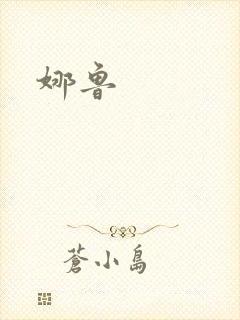 娜鲁
蒼小島